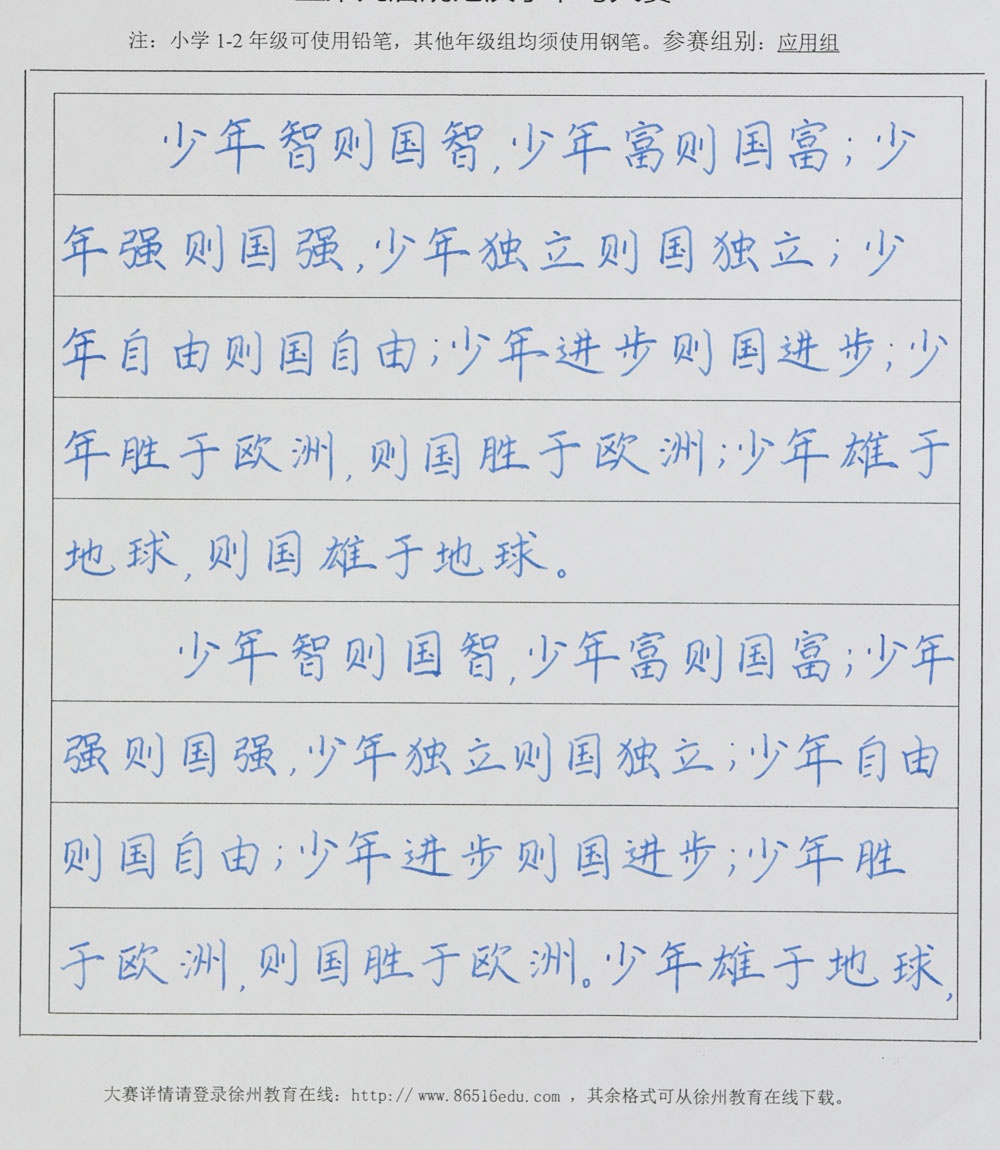 注：小学1-2年级可使用铅笔，其他年级组均须使用钢笔。参赛组别：应用组
少年智则国智,少年富则国富;少
年强则国强,少年独立则国独立;少
年自由则国自由;少年进步则国进步;少
年胜于欧洲,则国胜于欧洲;少年雄于
地球,则国雄于地球。
少年智则国智,少年富则国富;少年
强则国强,少年独立则国独立;少年自由
则国自由;少年进步则国进步;少年胜
于欧洲,则国胜于欧洲。少年雄于地球,
大赛详情请登录徐州教育在线：http://www.86516edu.com，其余格式可从徐州教育在线下载。